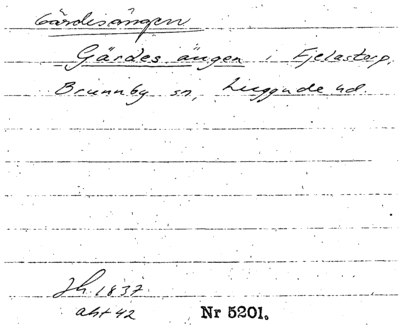 Gärdesängen
Gärdes ängen i Fjelastorp,
Brunnby sn, Luggude hd.
Jh 1837
akt 42 Nr 5201.